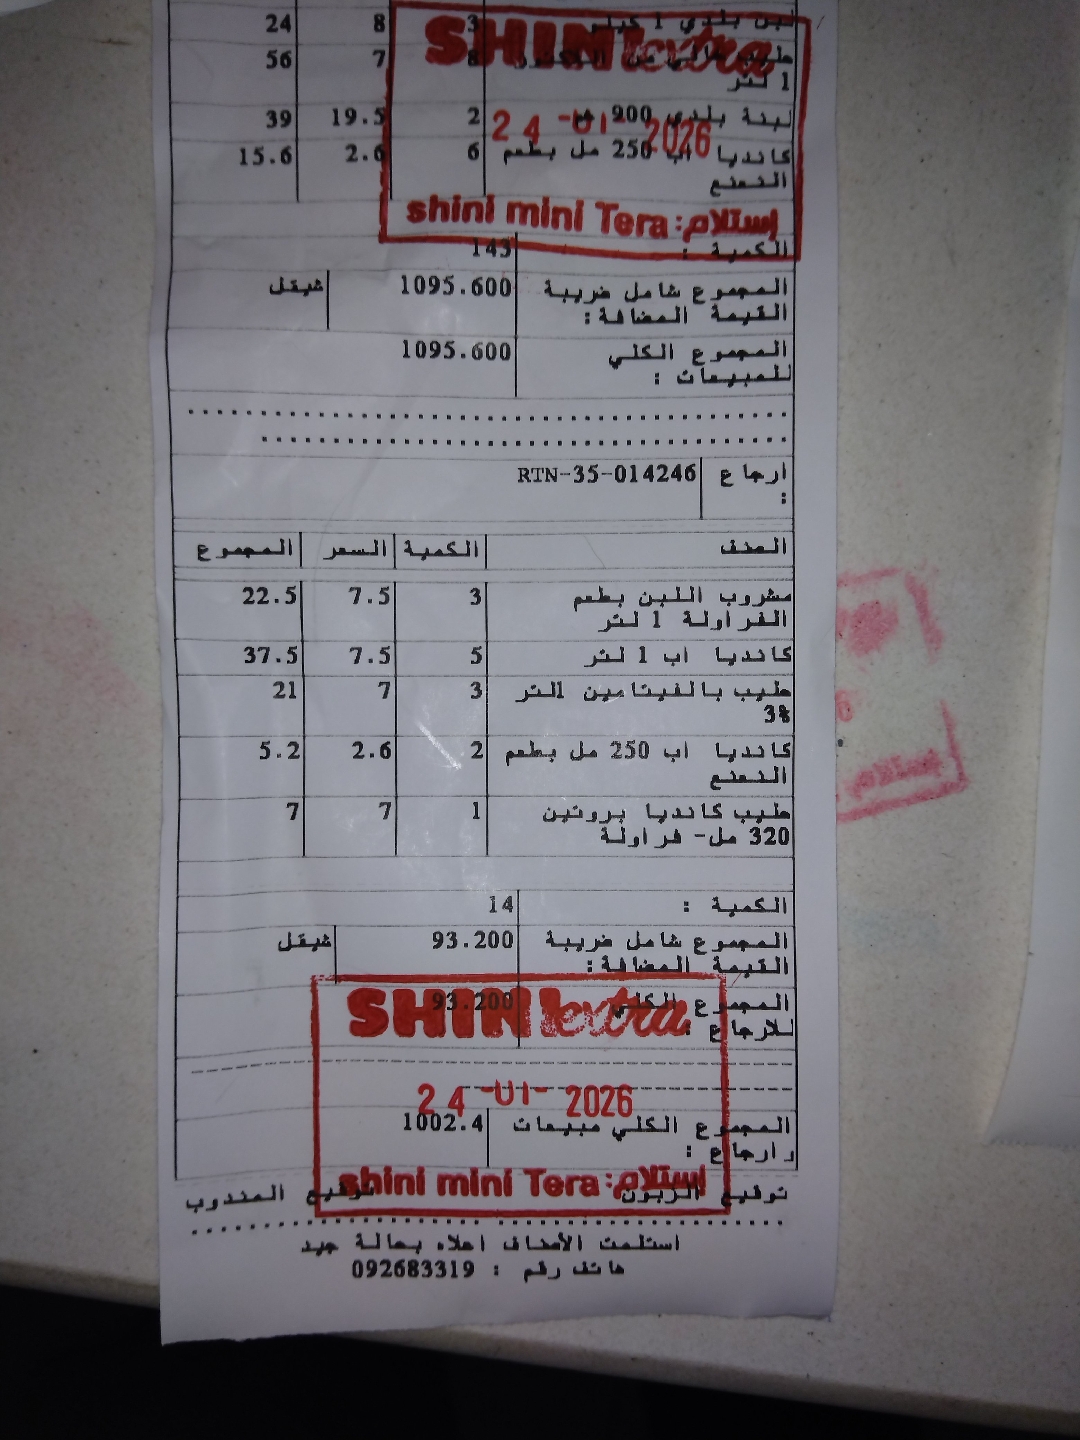 لبن بلدي 1 كيلو 3 8 24
طيب خالي من 8 7 56
1 لتر
لبنة بلدي 900 غم 2 19.5 39
كانديا اب 250 مل بطعم 6 2.6 15.6
النعنع
SHINI extra
24 -01- 2026
shini mini Tera :إستلام
الكمية : 143
المجموع شامل ضريبة 1095.600 شيقل
القيمة المضافة:
المجموع الكلي 1095.600
للمبيعات :
ارجاع RTN-35-014246
:
الصنف الكمية السعر المجموع
مشروب اللبن بطعم 3 7.5 22.5
الفراولة 1 لتر
كانديا اب 1 لتر 5 7.5 37.5
طيب بالفيتامين 1لتر 3 7 21
3%
كانديا اب 250 مل بطعم 2 2.6 5.2
النعنع
طيب كانديا بروتين 1 7 7
320 مل- فراولة
الكمية : 14
المجموع شامل ضريبة 93.200 شيقل
القيمة المضافة:
المجموع الكلي 93.200
للارجاع :
SHINI extra
24 -01- 2026
المجموع الكلي مبيعات 1002.4
وارجاع :
shini mini Tera :إستلام
توقيع الزبون توقيع المندوب
استلمت الأصناف اعلاه بحالة جيد
هاتف رقم : 092683319
إستلام